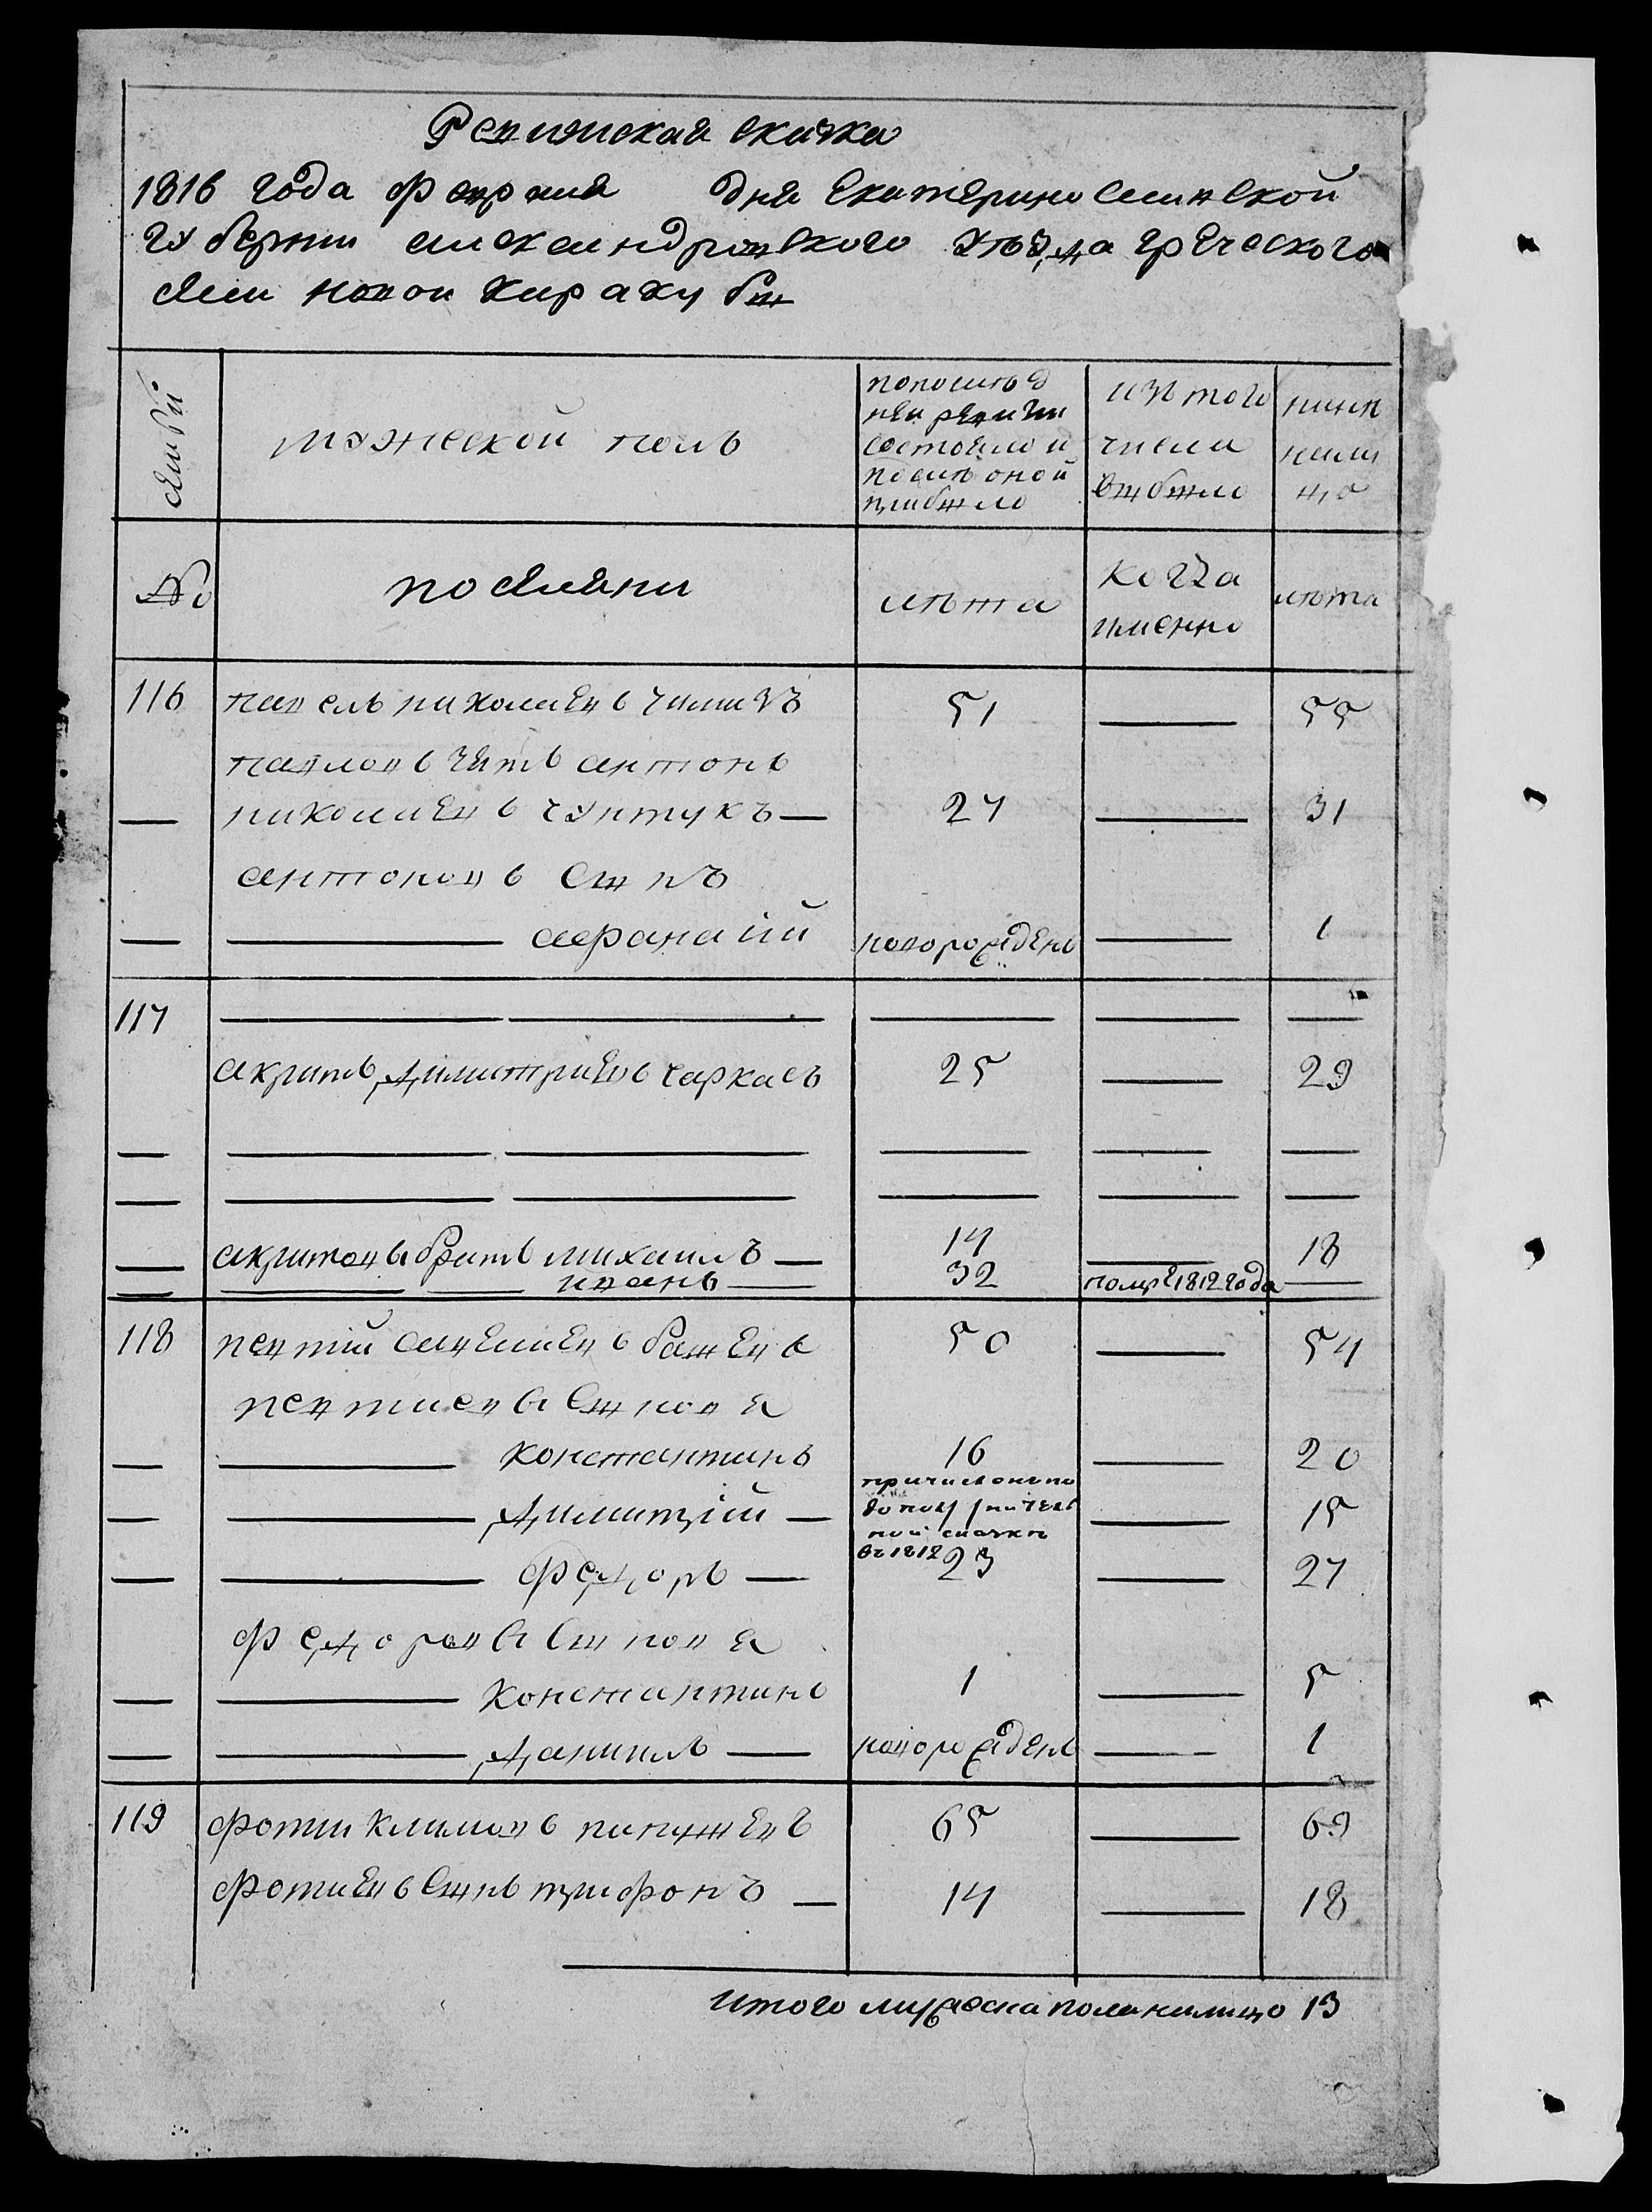 Ревижская скажка
1816 года Февраля дня Екатеринославской
губернии александровского уѣзда греческого
села новой Каракубы
семьи
мужеской полъ
по послѣд
ней ревизіи
состояло и
послѣ оной
прибыло
изъ того
числа
выбыло
нынѣ
на ли
цо
№
поселяни
лѣта
когда
именно
лѣта
116 павелъ николаевъ 51 — 55
павловъ зять антонъ
— николаевъ чунтукъ — 27 — 31
антоновъ сынъ
— — афанасій новорожденъ — 1
117 — — — — —
акритъ димитріевъ чаркасъ 25 — 29
— — — — — —
— — — — — —
— акритовъ братъ михаилъ — 14 — 18
— — — иванъ — 32 помре 1812 года —
118 певтій савелиевъ 50 — 54
певтиевы сыновя
— — константинъ 16 — 20
— — димитрій — причисленъ по
дополнител
ной скаскѣ
въ 1812 — 15
— — федоръ — 23 — 27
федоровы сыновя
— — константинъ 1 — 5
— — данилъ — новорожденъ — 1
119 фоти климовъ 65 — 69
фотиевъ сынъ трифонъ — 14 — 18
итого мужеска пола налицо 13